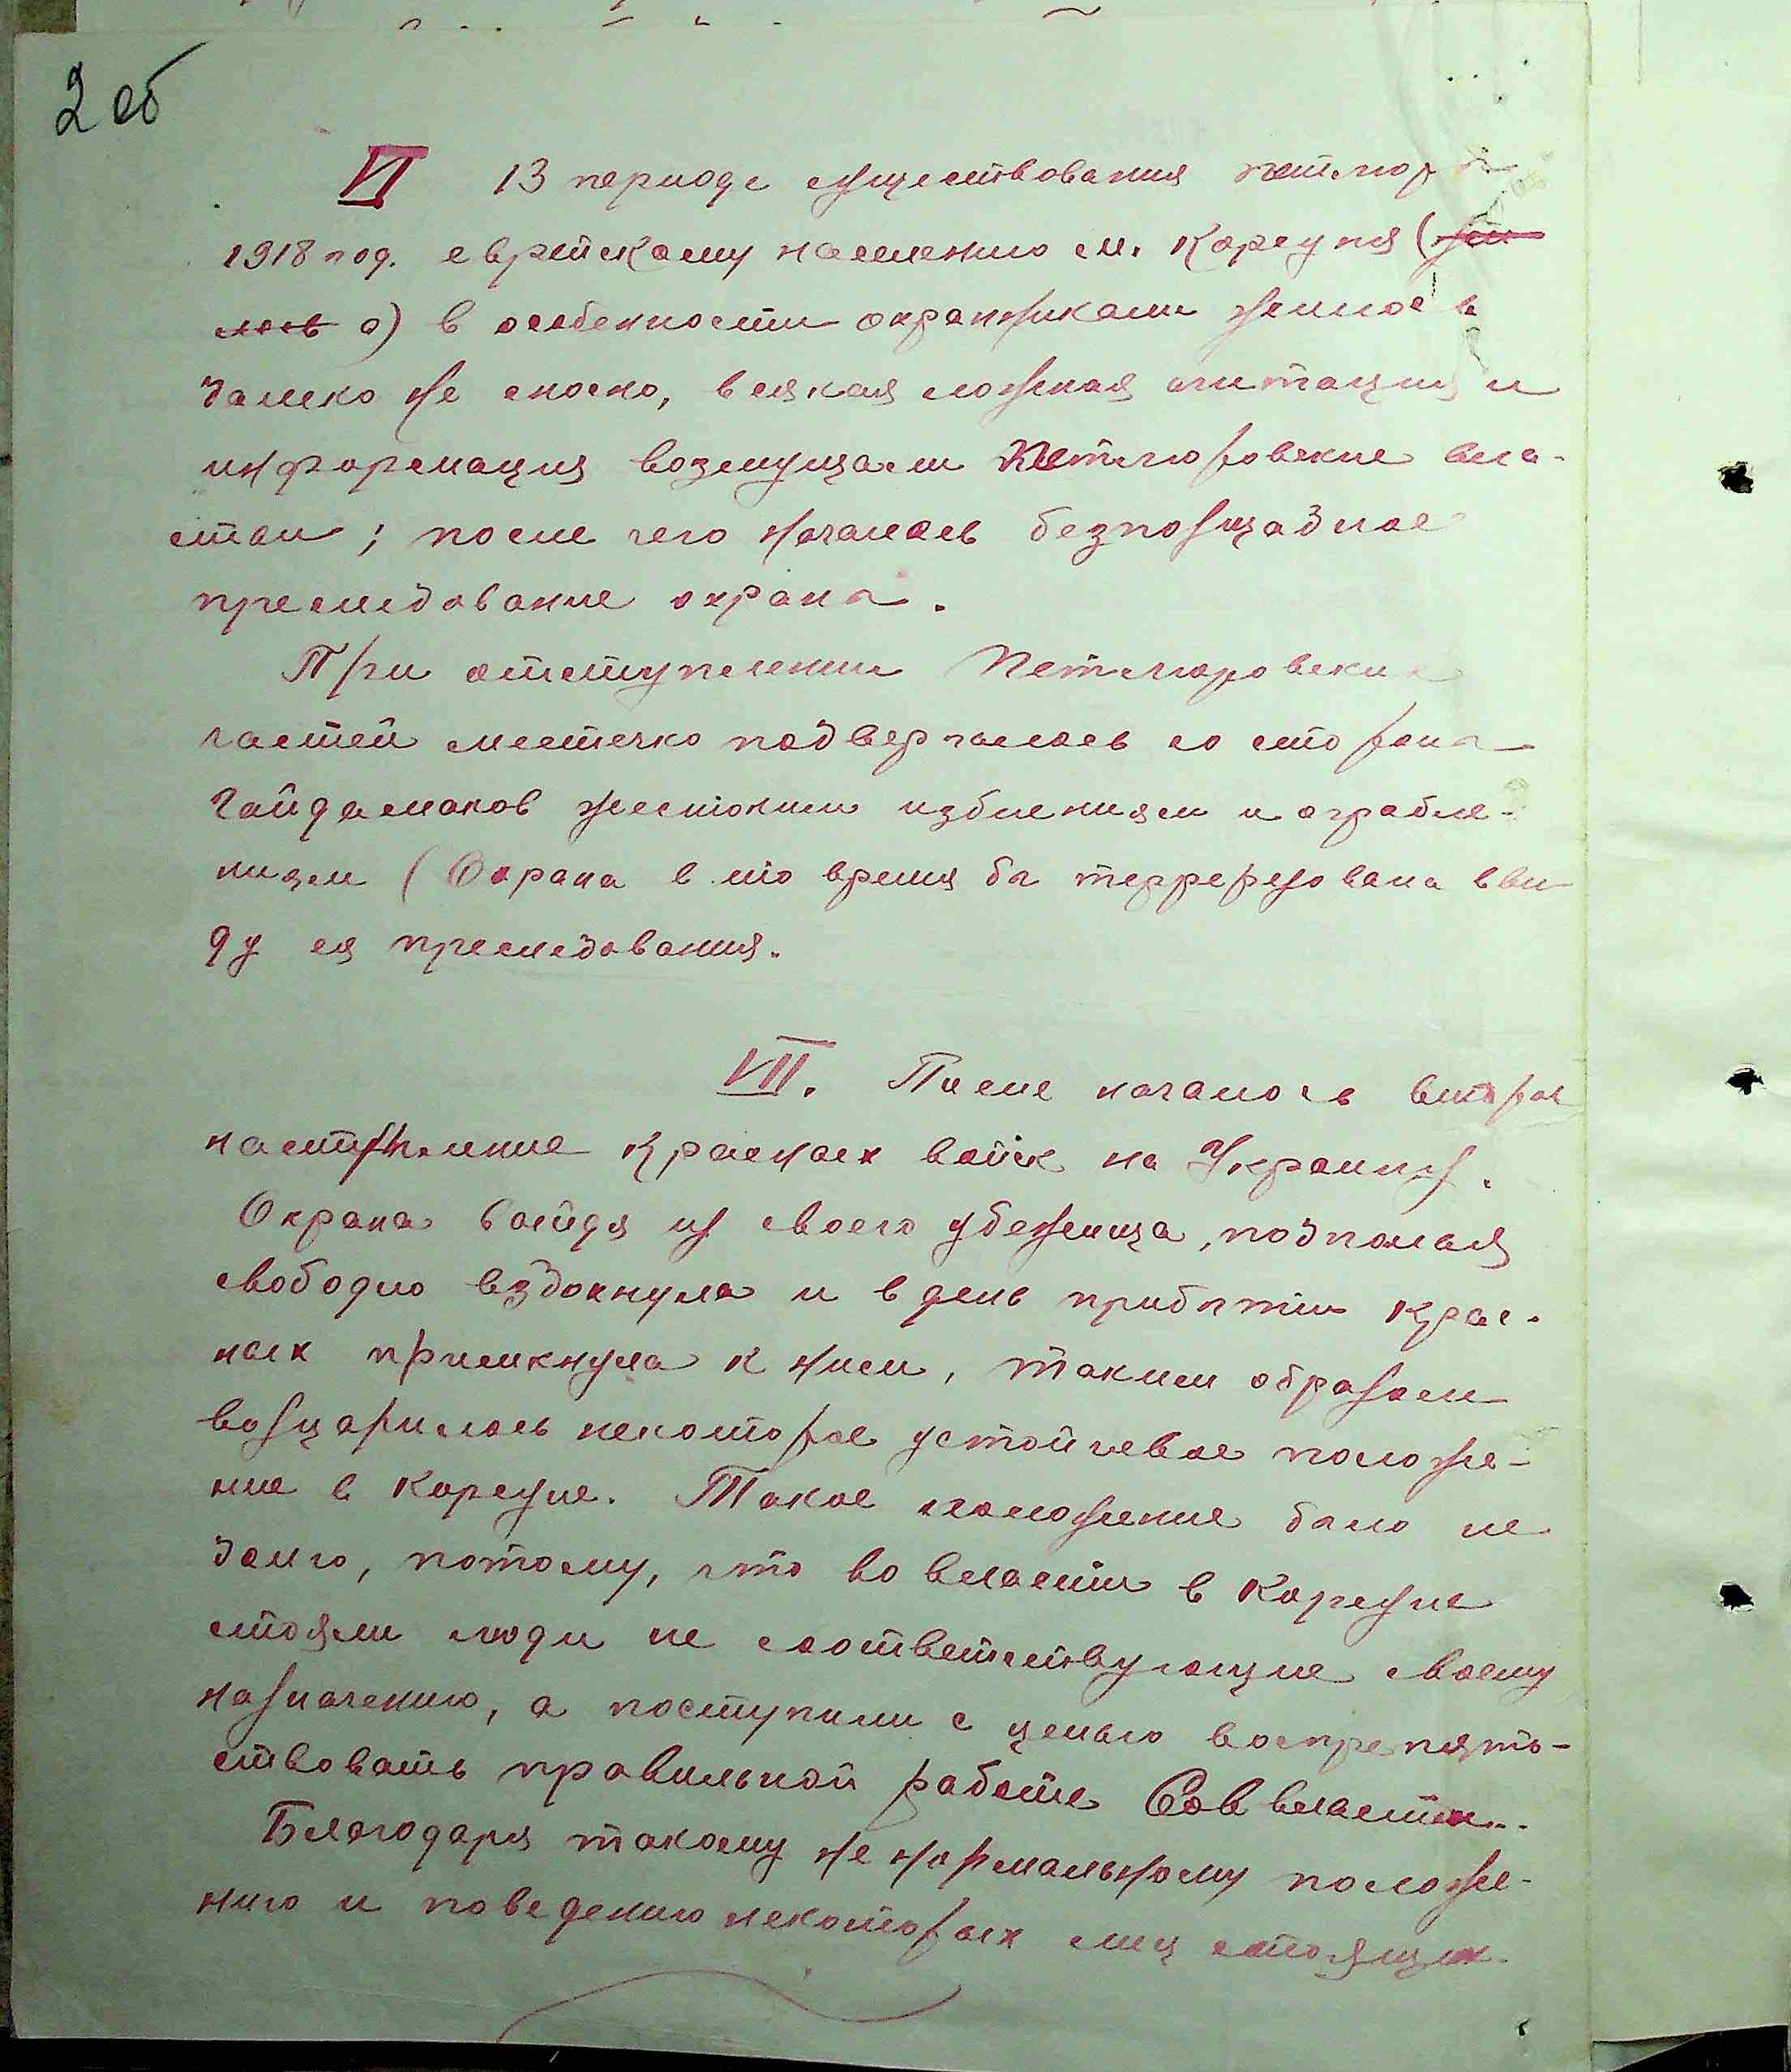 2 об
VI В периоде существования петлюр
1918 год. еврейскому населению м. Корсуня (
лось о) в особенности охранниками жилось
далеко не сносно, всякая ложная агитация и
информация возмущали Петлюровские вла-
сти; после чего началось безпощадное
преследование охраны.
При отступлении Петлюровских
частей местечко подвергалось со стороны
Гайдамаков жестоким избиениям и ограбле-
ниям (Охрана в то время бы терреризована вви-
ду ея преследования.
VII. После началось второе
наступление Красных войск на Украину.
Охрана выйдя из своего убежища, подполья
свободно вздохнула и в день прибытия крас-
ных примкнула к ним, таким образом
воцарилось некоторое устойчевое положе-
ние в Корсуне. Такое положение было не
долго, потому, что во власти в Корсуне
стояли люди не соответствующие своему
назначению, а поступили с целью воспрепят-
ствовать правильной работе Сов власти..
Благодаря такому не нормальному положе-
нию и поведению некоторых лиц стоящих